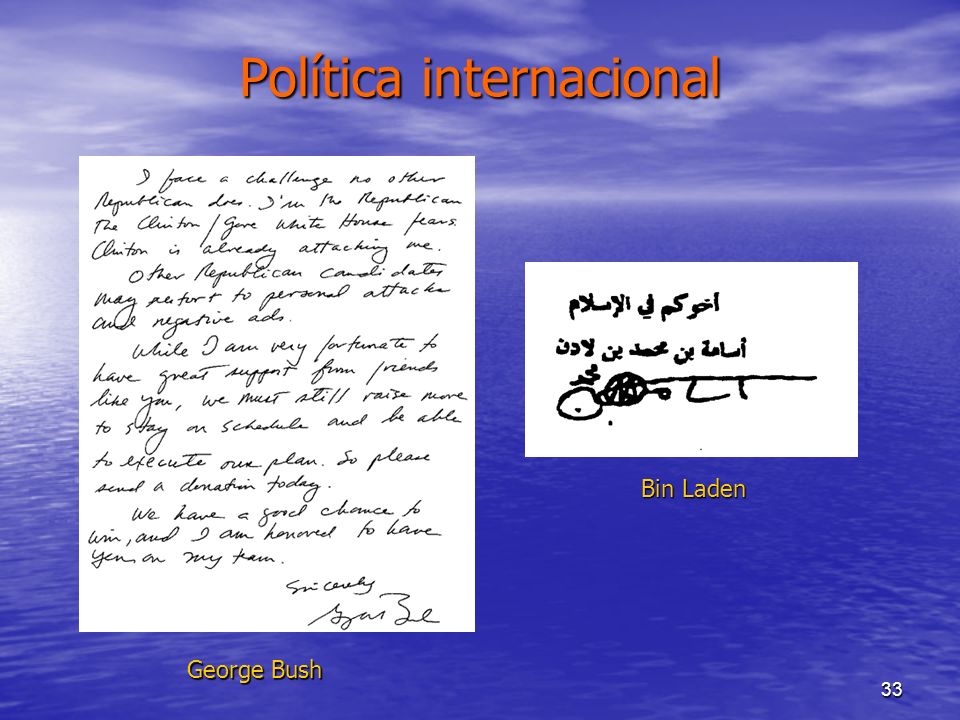 Política internacional
I face a challenge no other
Republican does. I'm the Republican
the Clinton/Gore White House fears.
Clinton is already attacking me.
Other Republican candidates
may resort to personal attacks
and negative ads.
While I am very fortunate to
have great support from friends
like you, we must still raise more
to stay on schedule and be able
to execute our plan. So please
send a donation today.
We have a good chance to
win, and I am honored to have
you on my team.
Sincerely
George Bush
أخوكم في الإسلام
أسامة بن محمد بن لادن
Bin Laden
33